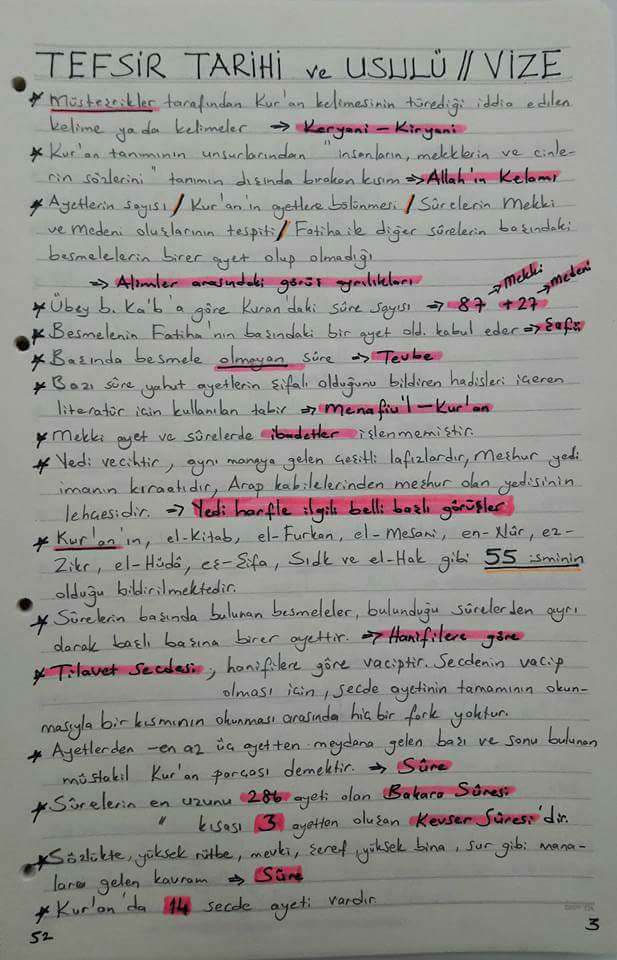 TEFSİR TARİHİ ve USULÜ // VİZE
* Müsteşrikler tarafından Kur'an kelimesinin türediği iddia edilen
kelime ya da kelimeler → Keryani - Kiryani
* Kur'an tanımının unsurlarından "insanların, meleklerin ve cinle-
rin sözlerini" tanımın dışında bırakan kısım ⇒ Allah'ın Kelamı
* Ayetlerin sayısı / Kur'an'ın ayetlere bölünmesi / Sûrelerin Mekki
ve Medeni oluşlarının tespiti / Fatiha ile diğer sûrelerin başındaki
besmelelerin birer ayet olup olmadığı
⇒ Alimler arasındaki görüş ayrılıkları
* Übey b. Ka'b'a göre Kuran'daki sûre sayısı → 87 → Mekki + 27 → Medeni
* Besmelenin Fatiha'nın başındaki bir ayet old. kabul eder ⇒ Şafii
* Başında besmele olmayan sûre ⇒ Tevbe
* Bazı sûre yahut ayetlerin şifalı olduğunu bildiren hadisleri içeren
literatür için kullanılan tabir ⇒ Menafiu'l-Kur'an
* Mekki ayet ve sûrelerde ibadetler işlenmemiştir.
* Yedi vecihtir, aynı manaya gelen çeşitli lafızlardır, Meşhur yedi
imanın kıraatıdır, Arap kabilelerinden meşhur olan yedisinin
lehçesidir. ⇒ Yedi harfle ilgili belli başlı görüşler
* Kur'an'ın, el-Kitab, el-Furkan, el-Mesani, en-Nûr, ez-
Zikr, el-Hüdâ, eş-Şifa, Sıdk ve el-Hak gibi 55 isminin
olduğu bildirilmektedir.
* Sûrelerin başında bulunan besmeleler, bulunduğu sûrelerden ayrı
olarak başlı başına birer ayettir. ⇒ Hanifilere göre
* Tilavet Secdesi; hanifilere göre vaciptir. Secdenin vacip
olması için, secde ayetinin tamamının okun-
masıyla bir kısmının okunması arasında hiçbir fark yoktur.
* Ayetlerden -en az üç ayetten meydana gelen başı ve sonu bulunan
müstakil Kur'an parçası demektir. ⇒ Sûre
* Sûrelerin en uzunu 286 ayeti olan Bakara Sûresi
" kısası 3 ayetten oluşan Kevser Sûresi'dir.
* Sözlükte, yüksek rütbe, mevki, şeref, yüksek bina, sur gibi mana-
lara gelen kavram ⇒ Sûre
* Kur'an'da 14 secde ayeti vardır.
52
3